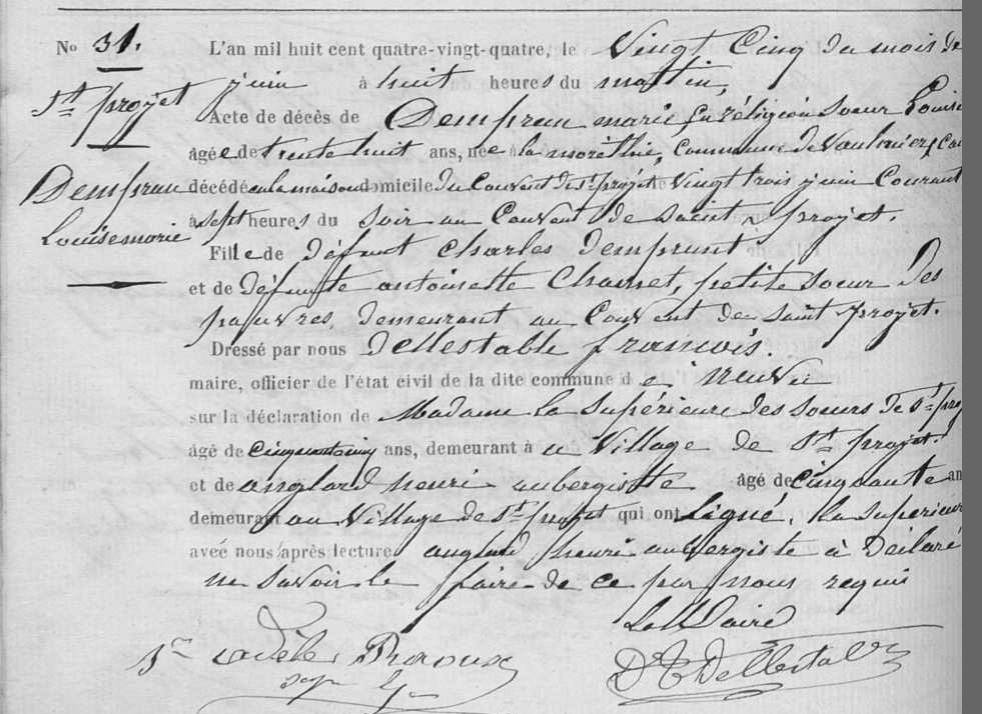 No 31.
St projet
Demprun
Louise marie
L'an mil huit cent quatre-vingt-quatre, le Vingt Cinq du mois de
juin à huit heures du mattin,
Acte de décès de Demprun marie en réligion soeur Louise
âgée de trente huit ans, née à la morêthie, Commune de
décédée en la maison domicile du Couvent de st projet le vingt trois juin Courant
à sept heures du soir au Couvent de saint projet.
Fille de défunt Charles Demprunt
et de défunte antoinette petite soeur des
pauvres, demeurant au Couvent de saint projet.
Dressé par nous Dellestable françois.
maire, officier de l'état civil de la dite commune de neuvic
sur la déclaration de Madame la supérieure des soeurs de st
âgé de cinquante cinq ans, demeurant à u Village de St projet.
et de anglard henri aubergiste âgé de cinquante an
demeurant au Village de st projet qui ont signé, la superieure
avec nous après lecture anglard henri aubergiste à déclaré
ne savoir le faire de ce par nous requis
Le Maire
Sr adèle
Dr Dellestable